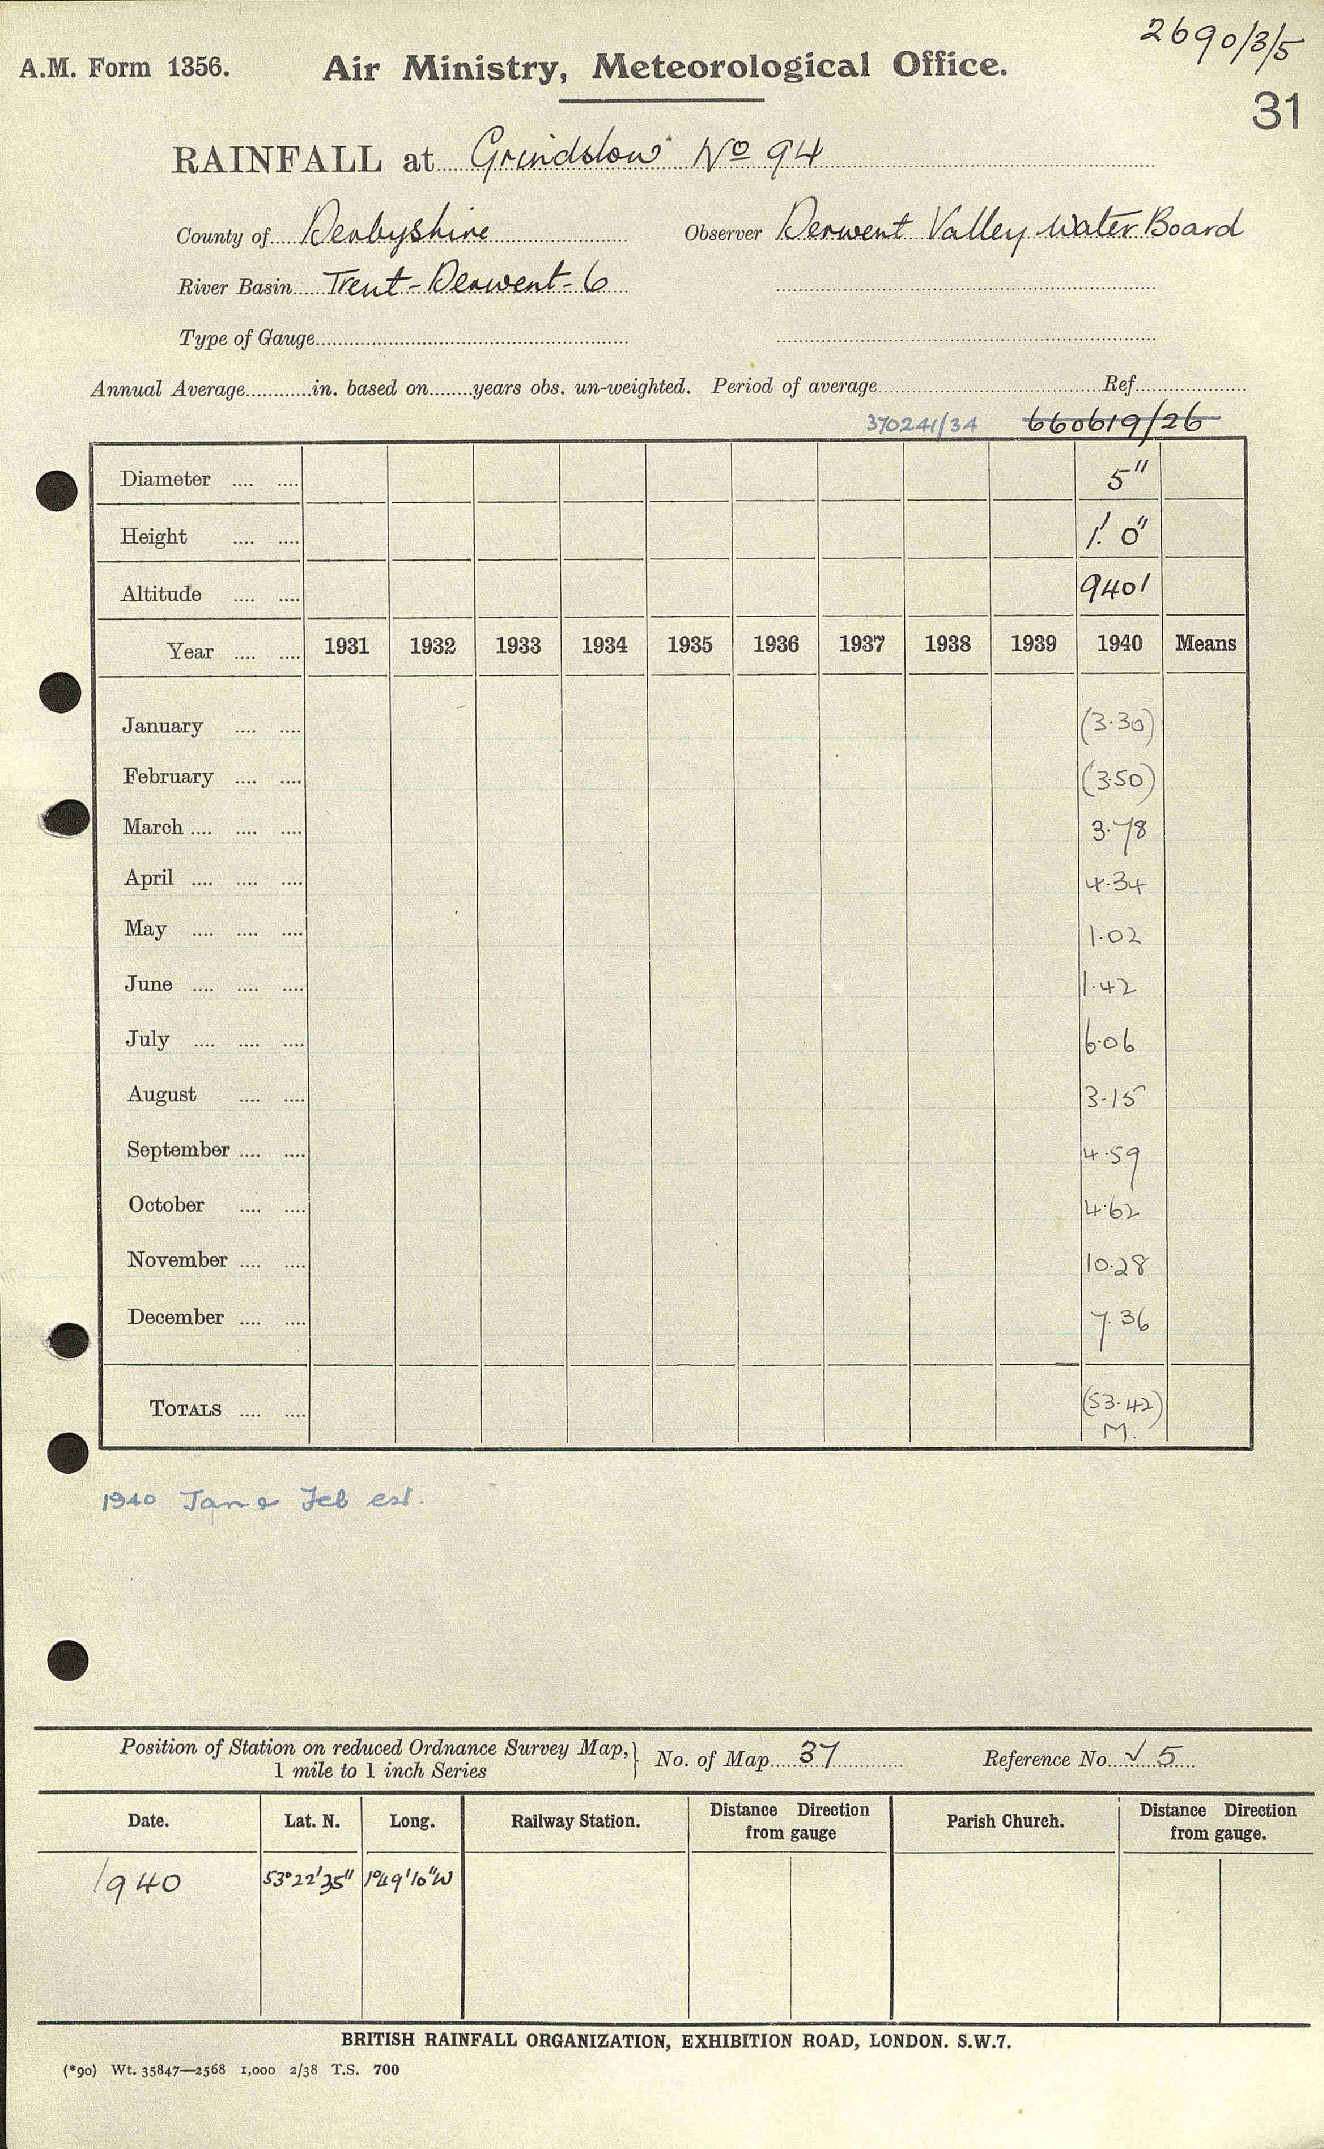 2690/3/5
A.M. Form 1356. Air Ministry, Meteorological Office.
31
RAINFALL at Grindslow No 94
County of Derbyshire Observer Derwent Valley Water Board
River Basin Trent-Derwent-6
Type of Gauge
Annual Average in. based on years obs. un-weighted. Period of average Ref.
370241/34 660619/26
Diameter 5"
Height 1' 0"
Altitude 940'
Year 1931 1932 1933 1934 1935 1936 1937 1938 1939 1940 Means
January (3.30)
February (3.50)
March 3.78
April 4.34
May 1.02
June 1.42
July 6.06
August 3.15
September 4.59
October 4.62
November 10.28
December 7.36
TOTALS (53.42)
M.
1940 Jan & Feb est.
Position of Station on reduced Ordnance Survey Map, No. of Map 37 Reference No. √ 5
1 mile to 1 inch Series
Date. Lat. N. Long. Railway Station. Distance Direction from gauge Parish Church. Distance Direction from gauge.
1940 53°22'35" 1°49'10"W
BRITISH RAINFALL ORGANIZATION, EXHIBITION ROAD, LONDON. S.W.7.
(*90) Wt. 35847—2568 1,000 2/38 T.S. 700